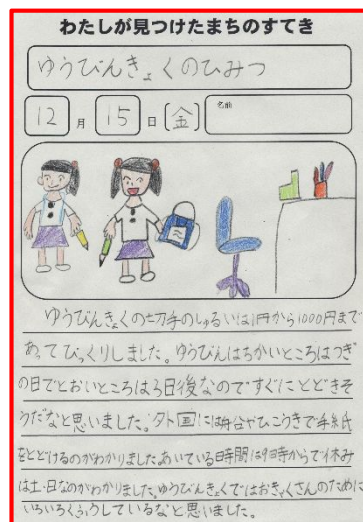 わたしが見つけたまちのすてき
ゆうびんきょくのひみつ
12月15日(金)
名前
ゆうびんきょくの切手のしゅるいは1円から1000円まで
あってびっくりしました。ゆうびんはちかいところはつぎ
の日でとおいところは3日後なのですぐにとどきそ
うだなと思いました。外国には船かひこうきで手紙
をとどけるのがわかりました。あいている時間は9時からで休み
は土・日なのがわかりました。ゆうびんきょくではおきゃくさんのために
いろいろくふうしているなと思いました。